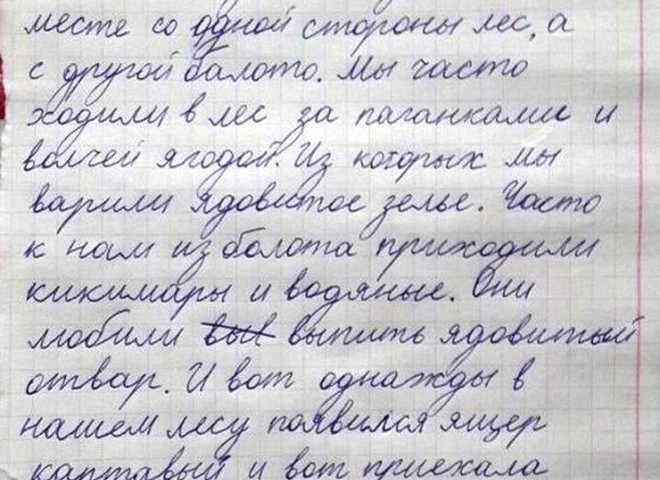 месте со одной стороны лес, а
с другой балото. Мы часто
ходили в лес за паганками и
волчей ягодой. Из которых мы
варили ядовитое зелье. Часто
к нам из болота приходили
кикимары и водяные. Они
любили выі выпить ядовитый
отвар. И вот однажды в
нашем лесу появился ящер
картавый и вот приехала